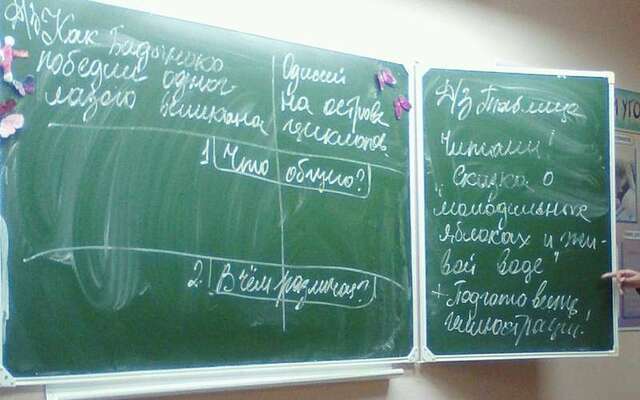 Д/з Как Бадыноко
победил одног-
лазого великана
Одиссей
на острове
циклопов
1 Что общего?
2. В чём различия?
Д/з Таблица
Читать!
"Сказка о
молодильных
яблоках и жи-
вой воде"
+ Подготовить
иллюстрации!